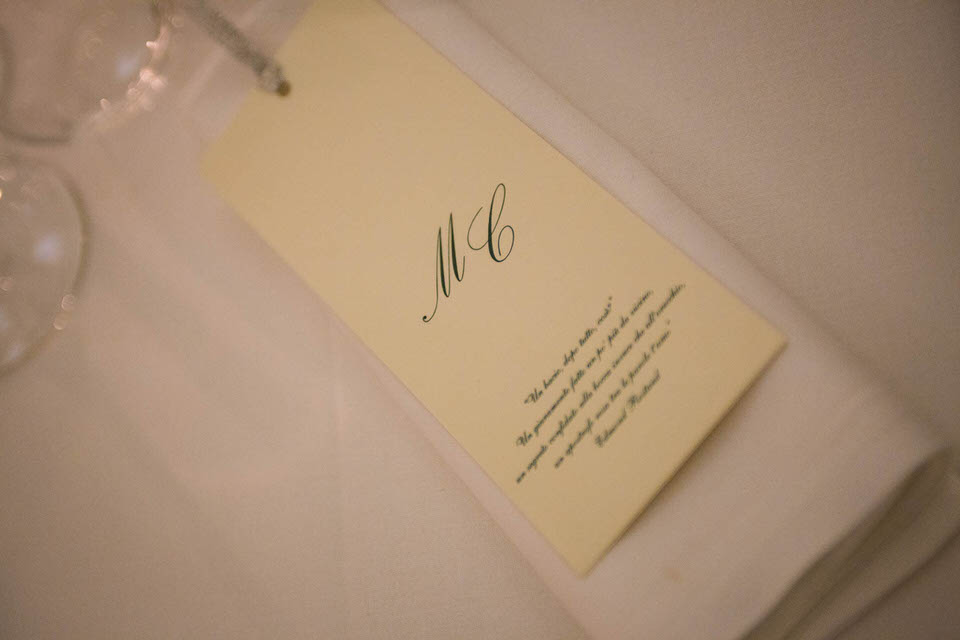 M C
"Un bacio, dopo tutto, cos'è?
Un giuramento fatto un po' più da vicino,
un segreto confidato alla bocca invece che all'orecchio,
un apostrofo rosa tra le parole t'amo."
Edmond Rostand